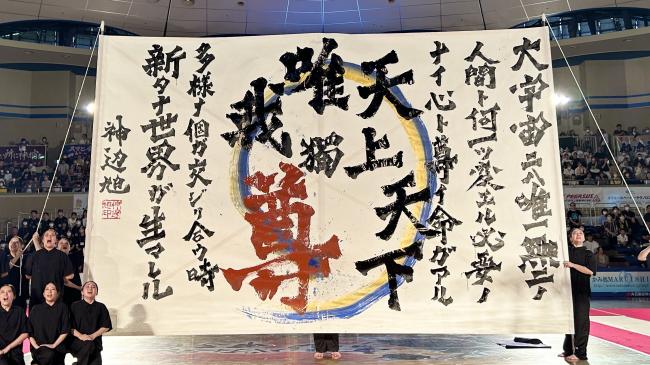 大宇宙ニハ唯一無二ノ
人間ト何一ツ変エル必要ノ
ナイ心ト尊イ命ガアル
天上天下
唯我獨尊
多様ナ個ガ交ジリ合ウ時
新タナ世界ガ生マレル
神辺旭
PEGASUS